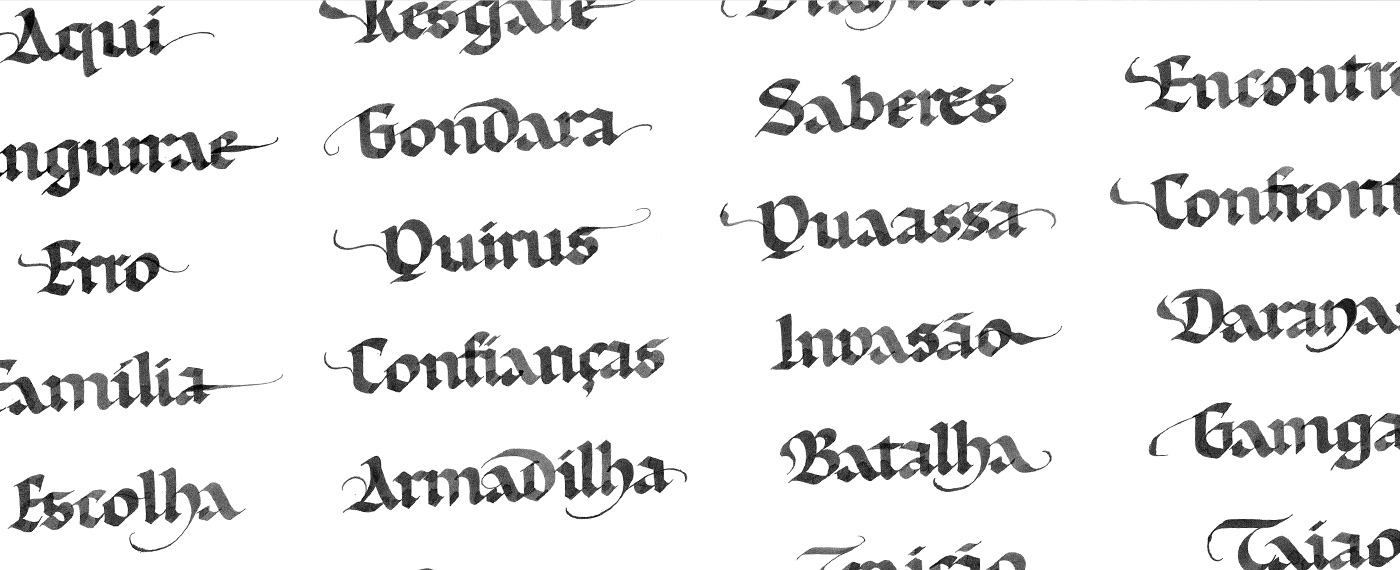 Aqui
Erro
Família
Escolha
Resgate
Gondara
Quirus
Confianças
Armadilha
Saberes
Quaassa
Invasão
Batalha
Encontro
Gamga
Taiao